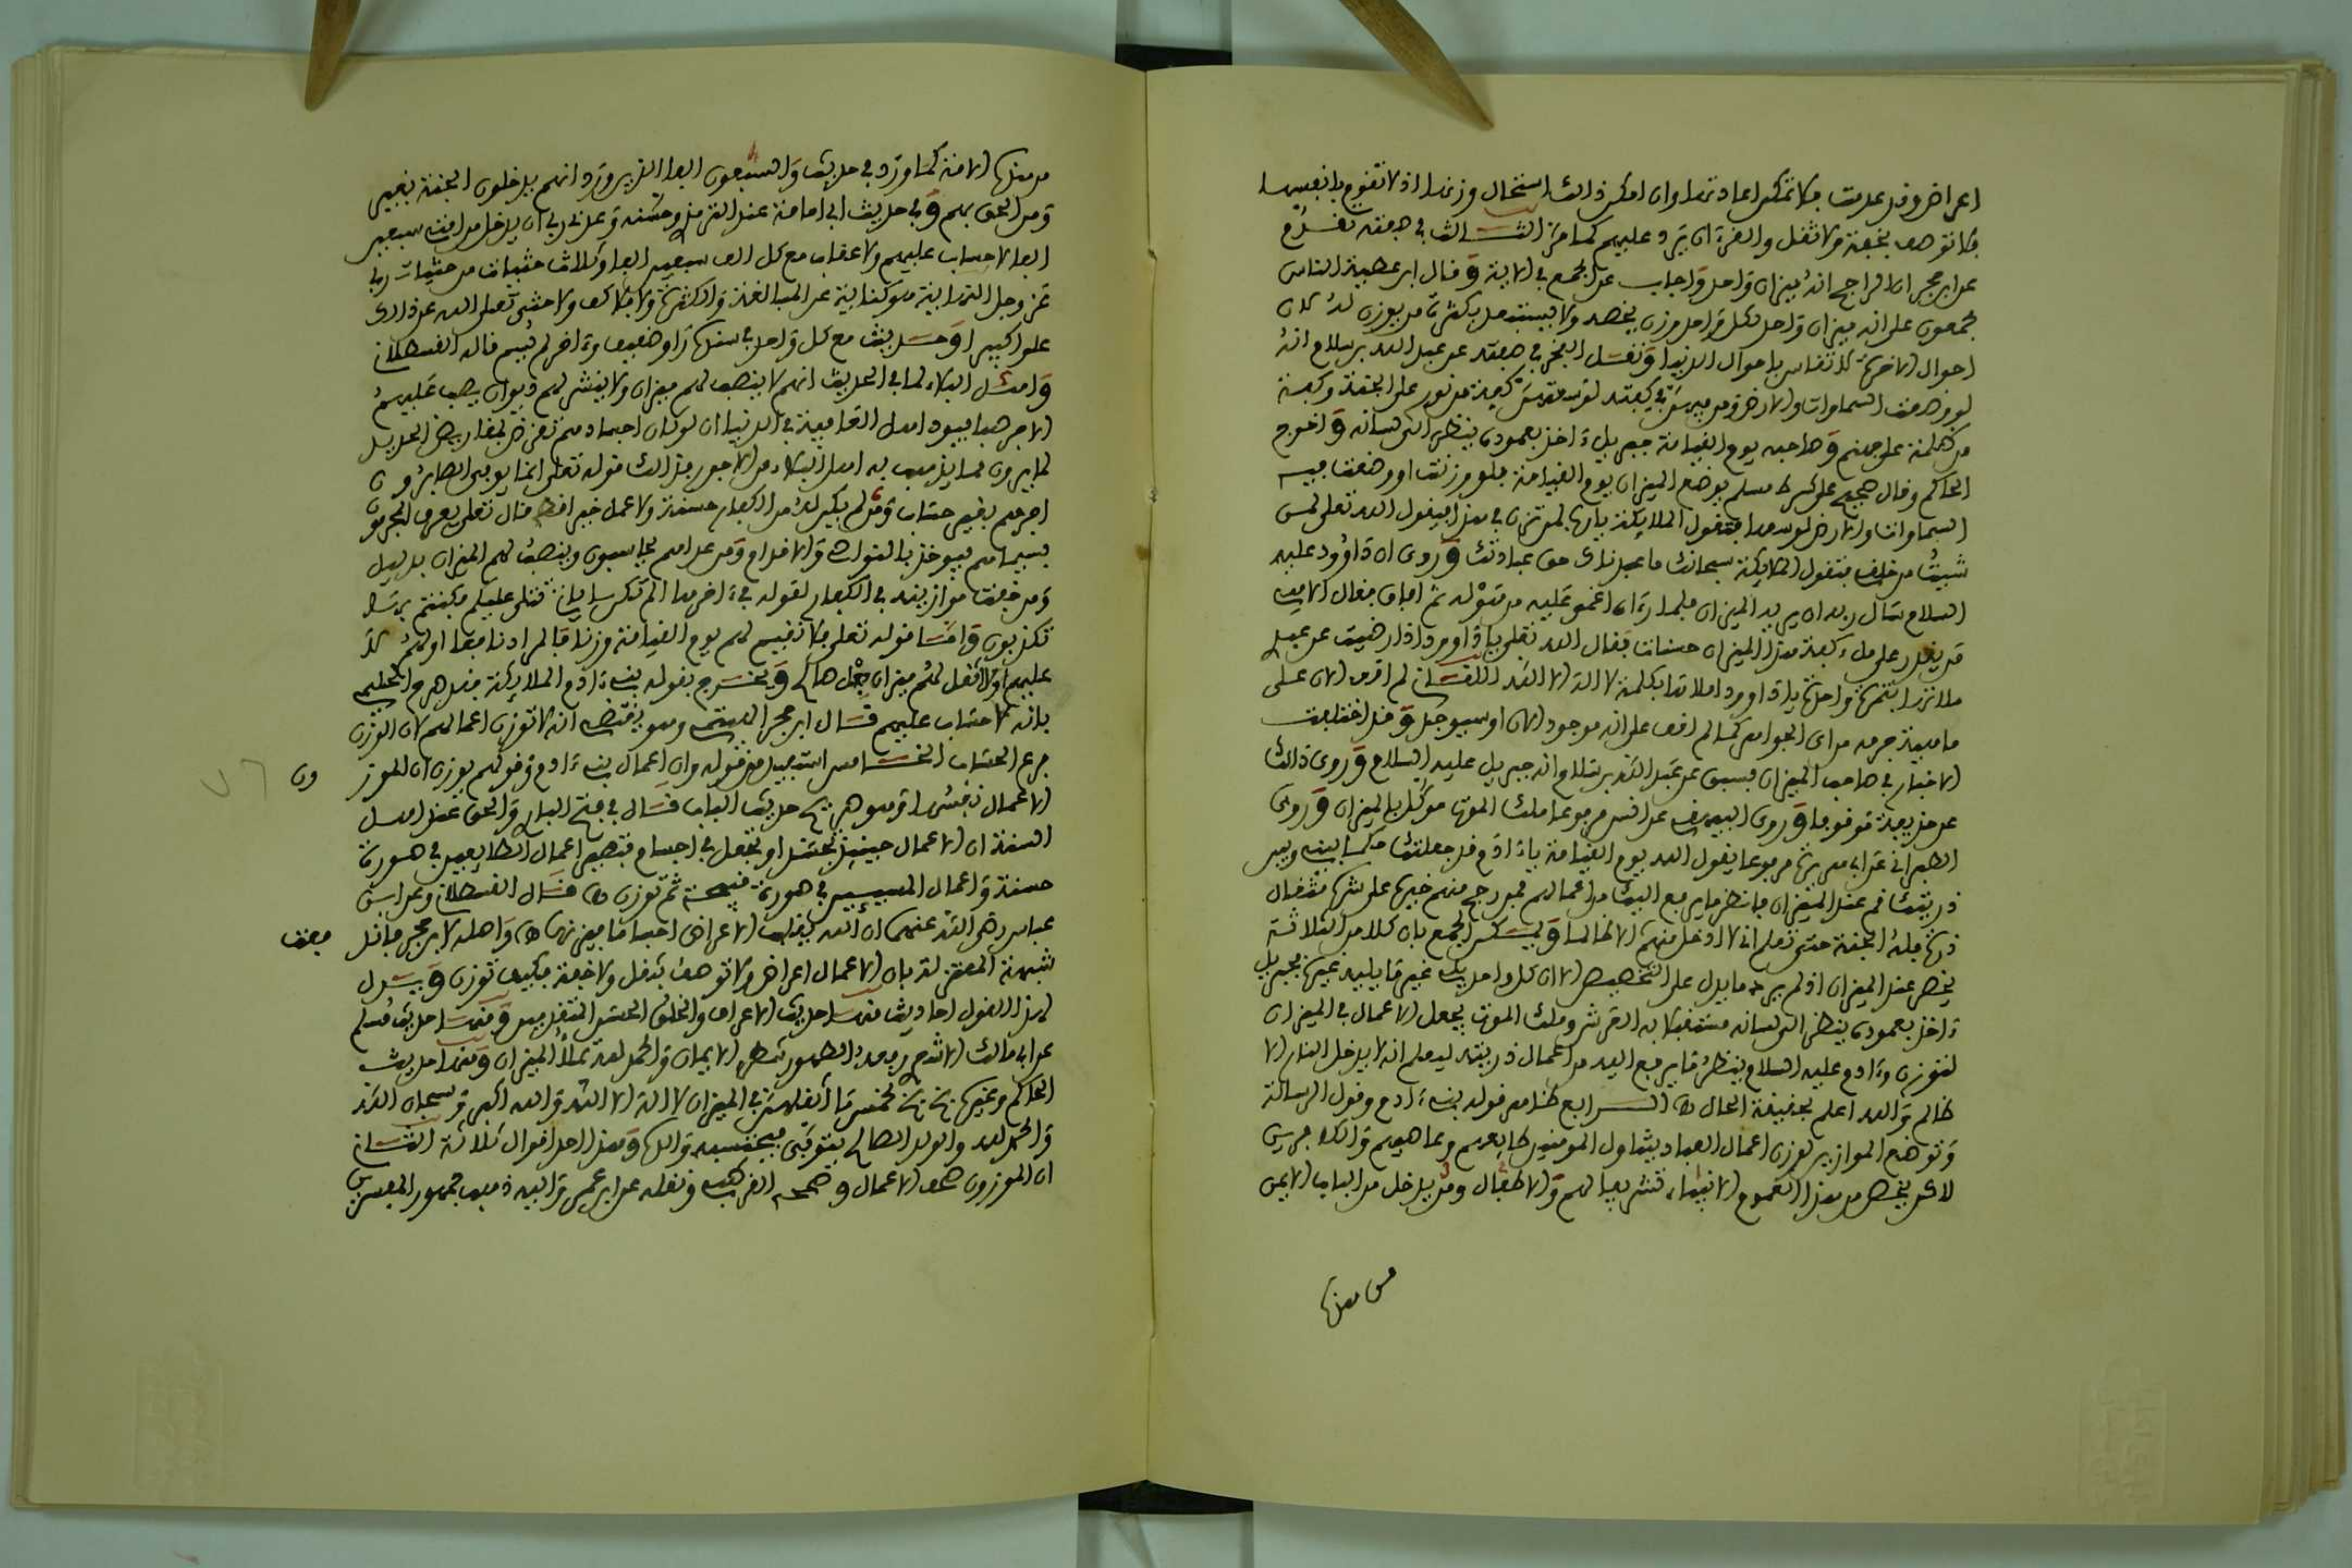 اعراض وقد عدمت فلا تمكن اعادتها وان امكن ذالك استحال وزنها اذ لا تقوم بانفسها
فلا توصف بخفة ولا ثقل والقرءان يرد عليهم كما مر الثالث في جمعه تقدم
عن ابن حجر ان الراجح انه ميزان واحد واجاب عن الجمع في الاية وقال ابن عطية الناس
مجمعون على انه ميزان واحد لكل واحد وزن يخصه ولا يستبعد بكثرة من يوزن له لان
احوال الاخرة لا تقاس باحوال الدنيا ونقل الفخر في صفته عن عبد الله بن سلام انه
لو وضعت السماوات والارض ومن فيهن في كفته لوسعتهن كفة من نور على الجنة وكفة
من ظلمة على جهنم وصاحبه يوم القيامة جبريل ءاخذ بعموده ينظر الى لسانه واخرج
الحاكم وقال صحيح على شرط مسلم يوضع الميزان يوم القيامة فلو وزنت او وضعت فيه
السماوات والارض لوسعها فتقول الملائكة يا ربنا لمن تزن في هذا فيقول الله تعلى لمن
شيت من خلقي فتقول الملائكة سبحانك ما عبدناك حق عبادتك وروي ان داوود عليه
السلام سال ربه ان يريه الميزان فلما رءاه اغمي عليه من هوله ثم افاق فقال الاهي من
يقدر على ملء كفة هذا الميزان حسنات فقال الله تعلى يا داوود اذا رضيت عن عبدي
ملاتها بتمرة واحدة يا داوود املاها بكلمة لا اله الا الله اللقاني لم اقف الان على
ماهية جرمه من اي الجواهر كما لم اقف على انه موجود الان او سيوجد وقد اختلفت
الاخبار في صاحب الميزان فسبق عن عبد الله بن سلام انه جبريل عليه السلام وروي ذالك
عن حذيفة موقوفا وروى البيهقي عن انس مرفوعا ملك الموت موكل بالميزان وروى
الطبراني عن ابي هريرة مرفوعا يقول الله يوم القيامة يا ءادم قد جعلتك حكما بيني وبين
ذريتك قم عند الميزان فانظر ما يرفع اليك من اعمالهم فمن رجح منهم خيره على شره مثقال
ذرة فله الجنة حتى تعلم اني لا ادخل منهم الا ظالما ويمكن الجمع بان كلا من الثلاثة
يحضر عند الميزان اذ لم يرد ما يدل على التخصيص الا ان كل واحد يليه غير ما يليه غيره فجبريل
ءاخذ بعموده ينظر الى لسانه مستقبلا به العرش وملك الموت يجعل الاعمال في الميزان
لتوزن وءادم عليه السلام ينظر ما يرفع اليه من اعمال ذريته ليعلم انه لا يدخل النار الا
ظالم والله اعلم بحقيقة الحال اه الرابع ظاهر قوله بني ءادم وقول الرسالة
وتوضع الموازين لوزن اعمال العباد يتناول المومنين طايعهم وعاصيهم والكافرين
لاكن يخص من هذا العموم الانبياء تشريفا لهم والاطفال ومن يدخل من الباب الايمن
من هذه
من هذه الامة كما ورد في حديث والسبعون الفا الذين ورد انهم يدخلون الجنة بغير
ومن الحق بهم وفي حديث ابي امامة عند الترمذي وحسنه وعدني ربي ان يدخل من امتي سبعين
الفا لا حساب عليهم ولا عقاب مع كل الف سبعين الفا وثلاث حثيات من حثيات ربي
عز وجل الترابية هو كناية عن المبالغة والكثرة ولا كف ولا حثي تعلى الله عن ذالك
علوا كبيرا وحديث مع كل واحد في سنده راو ضعيف وءاخر لم يسم قاله القسطلاني
واهل البلاء لما في الحديث انهم لا ينصب لهم ميزان ولا ينشر لهم ديوان يصب عليهم
الاجر صبا فيود اهل العافية في الدنيا ان لو كان اجسادهم تقرض بمقاريض الحديد
لما يرون مما يذهب به اهل البلاء من الاجور فذالك قوله تعلى انما يوفى الصابرون
اجرهم بغير حساب ومن لم يكن له من الكفار حسنة ولا عمل خير قط قال تعلى يعرف المجرمون
بسيماهم فيوخذ بالنواصي والاقدام ومن عداهم يحاسبون وينصب لهم الميزان بدليل
ومن خفت موازينه في الكفار لقوله في ءاخرها الم تكن ءاياتي تتلى عليكم فكنتم بها
تكذبون واما قوله تعلى فلا نقيم لهم يوم القيامة وزنا فالمراد نافعا او لهم لا
عليهم اولا نجعل لهم ميزان فصل هاكم ويخرج بقوله بني ءادم الملائكة فقد صرح الحليمي
بانه لا حساب عليهم قال ابن حجر الهيتمي وهو يقتضي انه لا توزن اعمالهم لان الوزن
فرع الحساب الخامس استفيد من قوله وان اعمال بني ءادم وقولهم بوزن ان الموزون
الاعمال نفسها وهو صريح حديث الباب قال في فتح الباري والحق عند اهل
السنة ان الاعمال حينئذ تجسد او تجعل في اجسام فتصير اعمال الطايعين في صورة
حسنة واعمال المسيئين في صورة قبيحة ثم توزن اه قال القسطلاني وعن ابن
عباس رضي الله عنهما ان الله يقلب الاعراض اجساما فيزنها اه واصله لابن حجر فاندفعت
شبهة المعتزلة بان الاعمال اعراض ولا توصف بثقل ولا خفة فكيف توزن ويدل
لهذا القول احاديث منها حديث الاعراف والخلق الحسن المتقدمين ومنها حديث مسلم
عن ابي مالك الاشعري رفعه الطهور شطر الايمان والحمد لله تملأ الميزان ومنها حديث
الحاكم وغيره بخ بخ لخمس ما اثقلهن في الميزان لا اله الا الله والله اكبر وسبحان الله
والحمد لله والولد الصالح يتوفى فيحتسبه والده وهذا احد اقوال ثلاثة الثاني
ان الموزون صحف الاعمال وصححه القرطبي ونقله عن ابن عمر واليه ذهب جمهور المفسرين